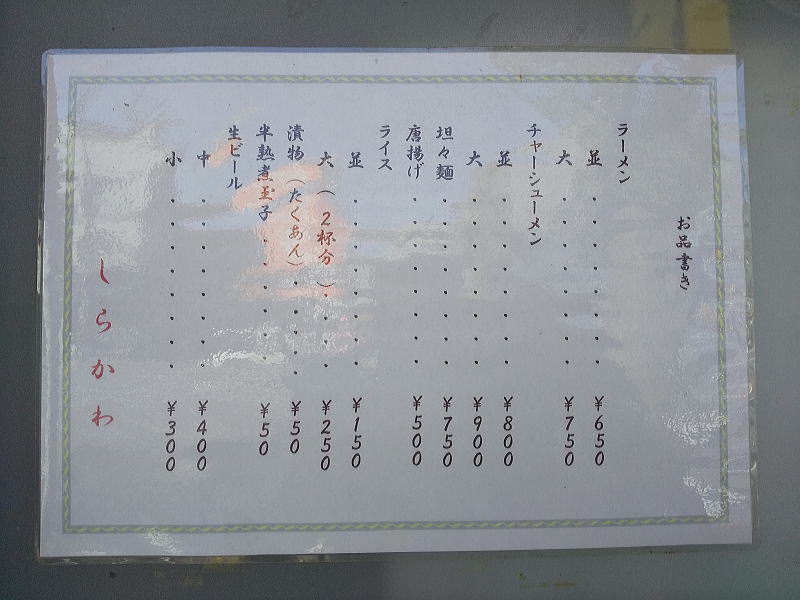 お品書き
ラーメン
並・・・・・・・・¥650
大・・・・・・・・¥750
チャーシューメン
並・・・・・・・・¥800
大・・・・・・・・¥900
坦々麺・・・・・・・・¥750
唐揚げ・・・・・・・・¥500
ライス
並・・・・・・・・¥150
大(2杯分)・・・・¥250
漬物(たくあん)・・・・・¥50
半熟煮玉子・・・・・・¥50
生ビール
中・・・・・・・・¥400
小・・・・・・・・¥300
しらかわ